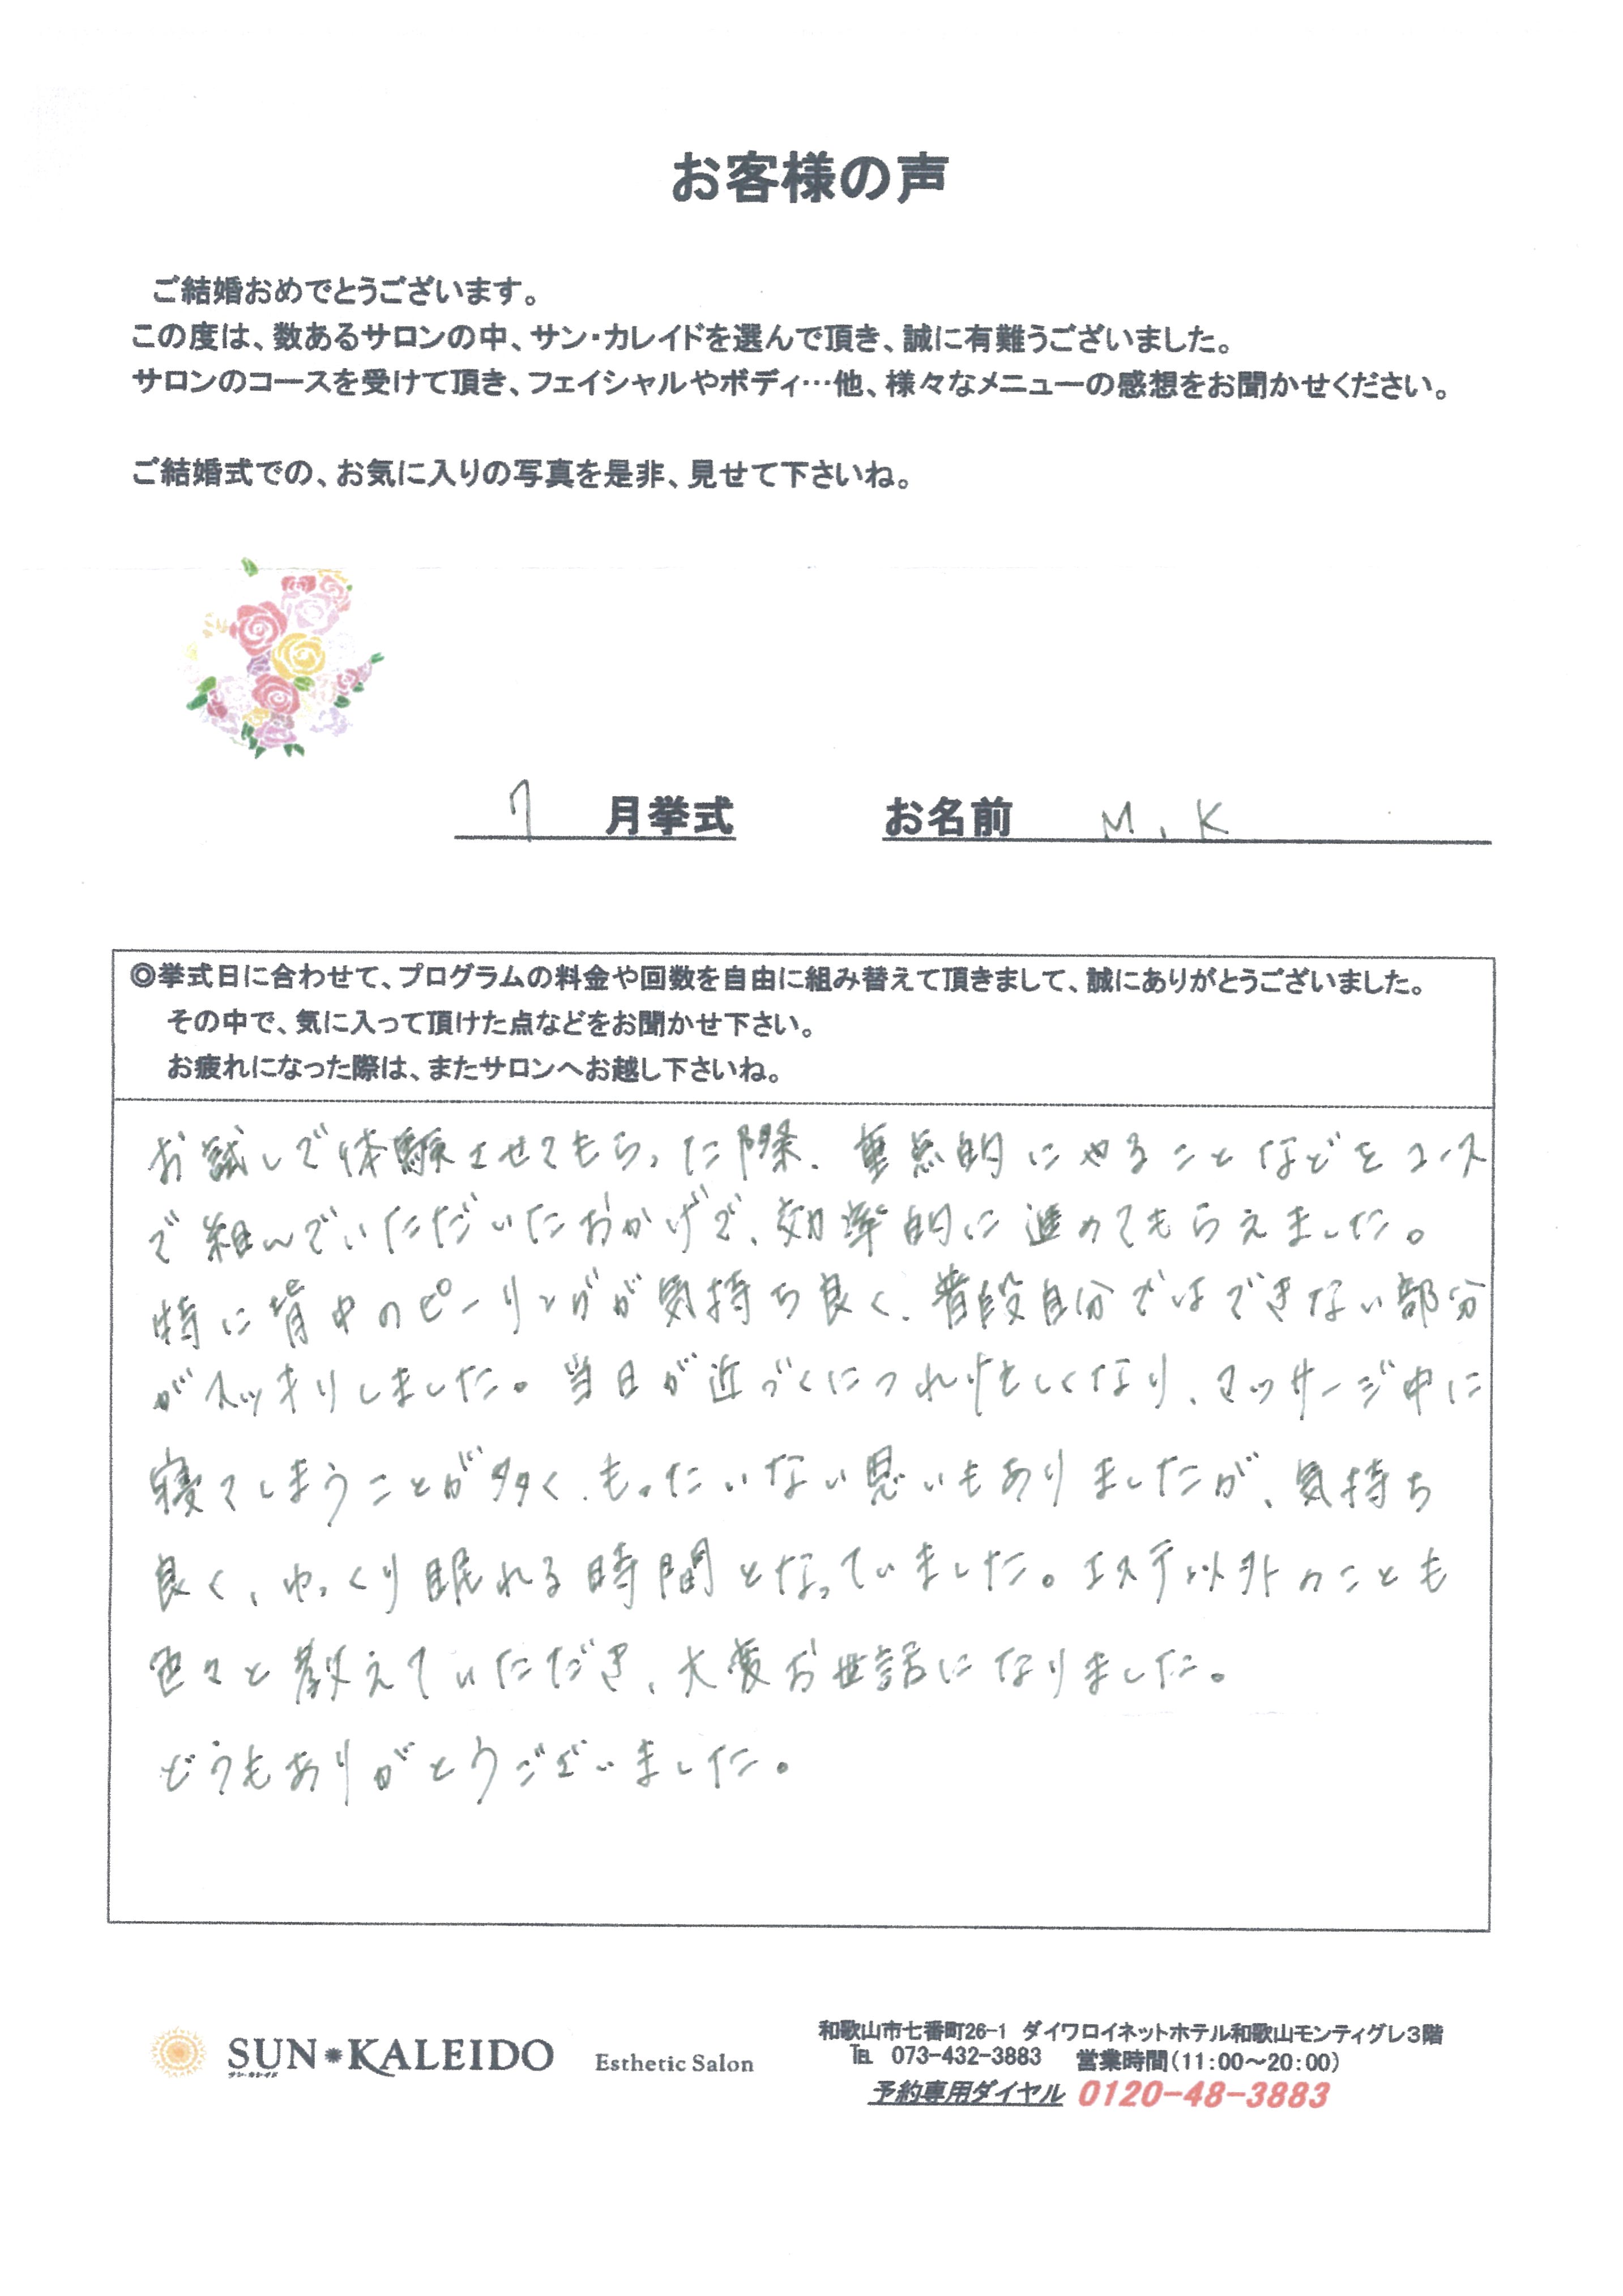 お客様の声
ご結婚おめでとうございます。
この度は、数あるサロンの中、サン・カレイドを選んで頂き、誠に有難うございました。
サロンのコースを受けて頂き、フェイシャルやボディ…他、様々なメニューの感想をお聞かせください。
ご結婚式での、お気に入りの写真を是非、見せて下さいね。
7 月挙式 お名前 M.K
◎挙式日に合わせて、プログラムの料金や回数を自由に組み替えて頂きまして、誠にありがとうございました。
その中で、気に入って頂けた点などをお聞かせ下さい。
お疲れになった際は、またサロンへお越し下さいね。
お試しで体験させてもらった際、重点的にやることなどをコース
で組んでいただいたおかげで、効率的に進めてもらえました。
特に背中のピーリングが気持ち良く、普段自分ではできない部分
がスッキリしました。当日が近づくにつれ忙しくなり、マッサージ中に
寝てしまうことが多く、もったいない思いもありましたが、気持ち
良く、ゆっくり眠れる時間となっていました。エステ以外のことも
色々と教えていただき、大変お世話になりました。
どうもありがとうございました。
SUN KALEIDO Esthetic Salon
サン・カレイド
和歌山市七番町26-1 ダイワロイネットホテル和歌山モンティグレ3階
℡ 073-432-3883 営業時間(11:00～20:00)
予約専用ダイヤル 0120-48-3883